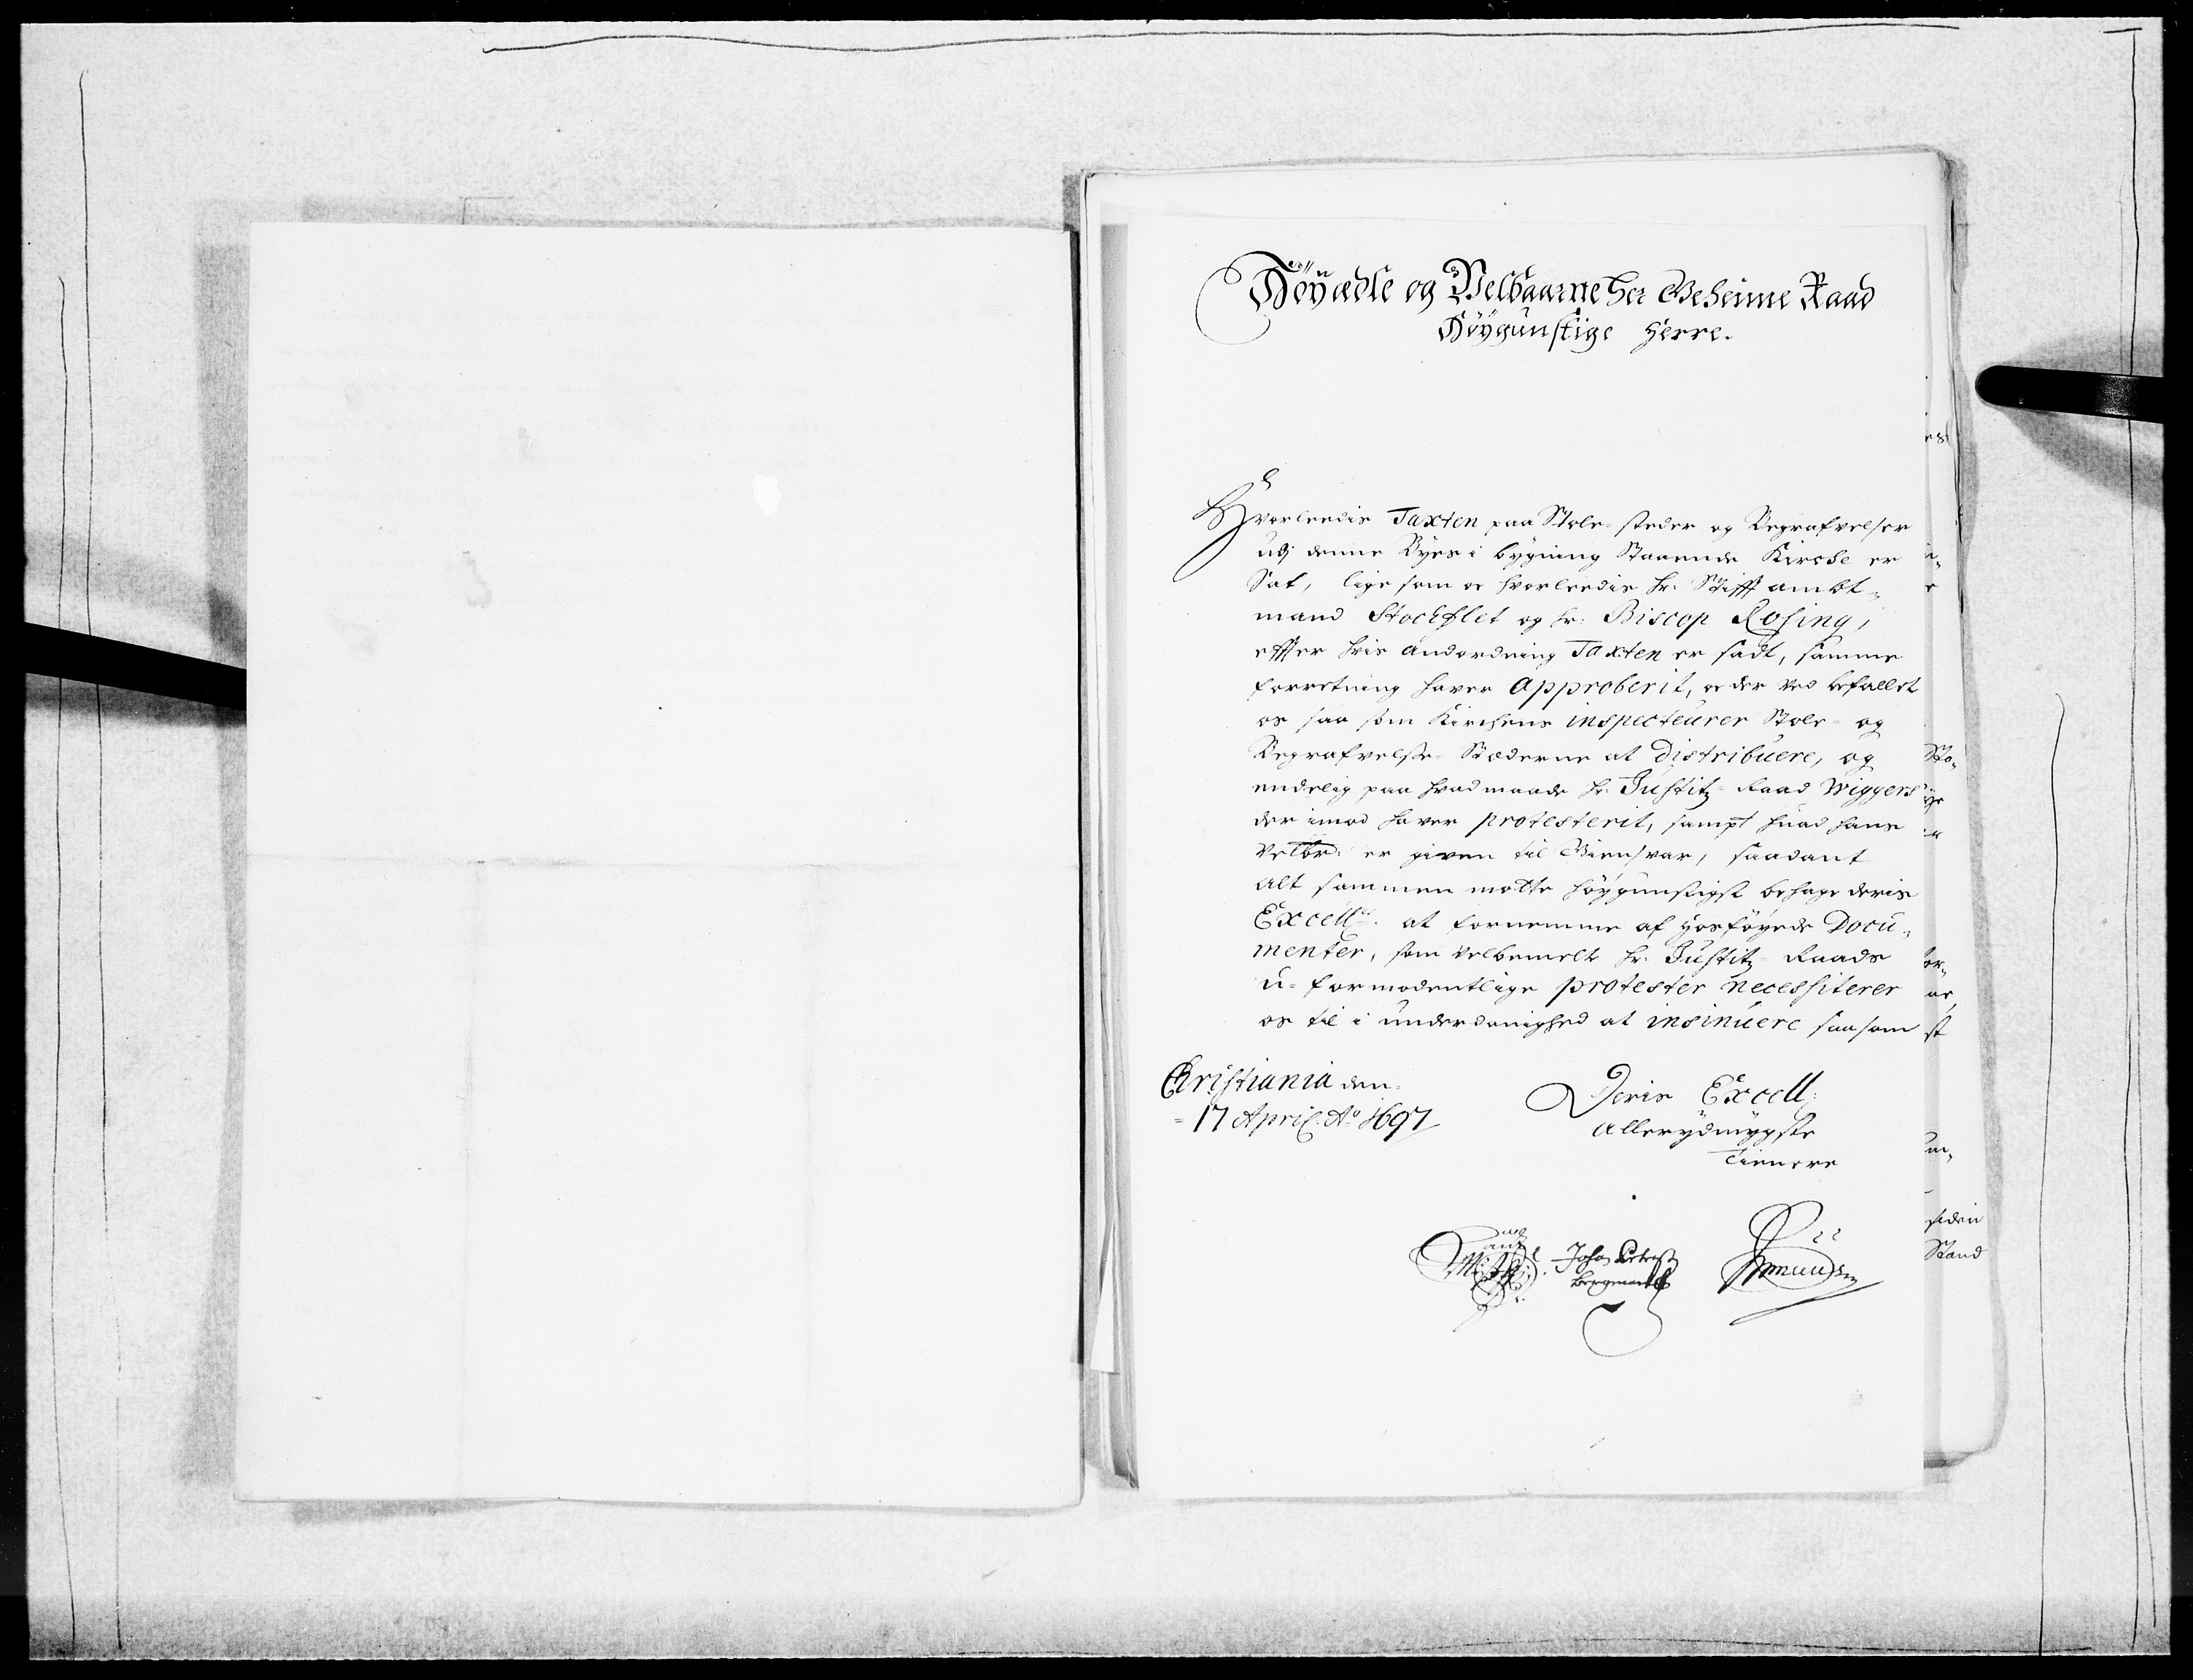 Höyædle og Velbaarne Her Geheime Raad
Höygunstige Herre.
Hvorleedis Taxten paa Stole-steder og Begrafvelser
udj denne Byes i bygning staaende Kirche er
Sat, lige som oc hvorleedis hr: Stifft ambt-
mand Stockflet og hr: Biscop Rosing,
effter hvis Andordning Taxten er sadt, samme
forretning haver Approberit, oc der ved befallet
os saa som Kirchens inspecteurer Stole- og
Begrafvelse-Stæderne at Distribuere, og
endelig paa hvad maade hr. Justitz-Raad Wiggers
der imod haver protesterit, sampt huad hans
Velbr: er given til Giensvar, saadant
alt sammen motte höygunstigst behage deris
Excell: at fornemme af hosföyede Docu-
menter, som velbemelte hr. Justitz-Raads
u-formodentlige protester necessiterer
os til i underdanighed at insinuere saasom
Christiania den
17 April: Ao 1697
Deris Excell:
Allerydmygste
Tienere
Johan Peters
Bergman
Amundsen
Sto-
st
Stand